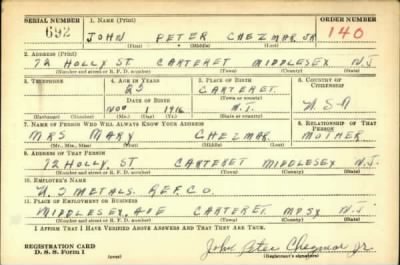 SERIAL NUMBER 1. NAME (Print) ORDER NUMBER
692 JOHN PETER CHEZMAR JR 140
(First) (Middle) (Last)
2. ADDRESS (Print)
72 HOLLY ST CARTERET MIDDLESEX N.J.
(Number and street or R. F. D. number) (Town) (County) (State)
3. TELEPHONE 4. AGE IN YEARS 5. PLACE OF BIRTH 6. COUNTRY OF CITIZENSHIP
CARTERET
(Town or county)
DATE OF BIRTH
NOV 1 1916 N.J. U.S.A
(Exchange) (Number) (Mo.) (Day) (Yr.) (State or country)
7. NAME OF PERSON WHO WILL ALWAYS KNOW YOUR ADDRESS 8. RELATIONSHIP OF THAT PERSON
MRS MARY CHEZMAR MOTHER
(Mr., Mrs., Miss) (First) (Middle) (Last)
9. ADDRESS OF THAT PERSON
72 HOLLY. ST CARTERET MIDDLESEX N.J.
(Number and street or R. F. D. number) (Town) (County) (State)
10. EMPLOYER'S NAME
U.S METALS. REF.CO.
11. PLACE OF EMPLOYMENT OR BUSINESS
MIDDLESEX. AVE CARTERET. N.J.
(Number and street or R. F. D. number) (Town) (County) (State)
I AFFIRM THAT I HAVE VERIFIED ABOVE ANSWERS AND THAT THEY ARE TRUE.
REGISTRATION CARD
D. S. S. Form 1 (over) John Peter Chezmar Jr
(Registrant's signature)